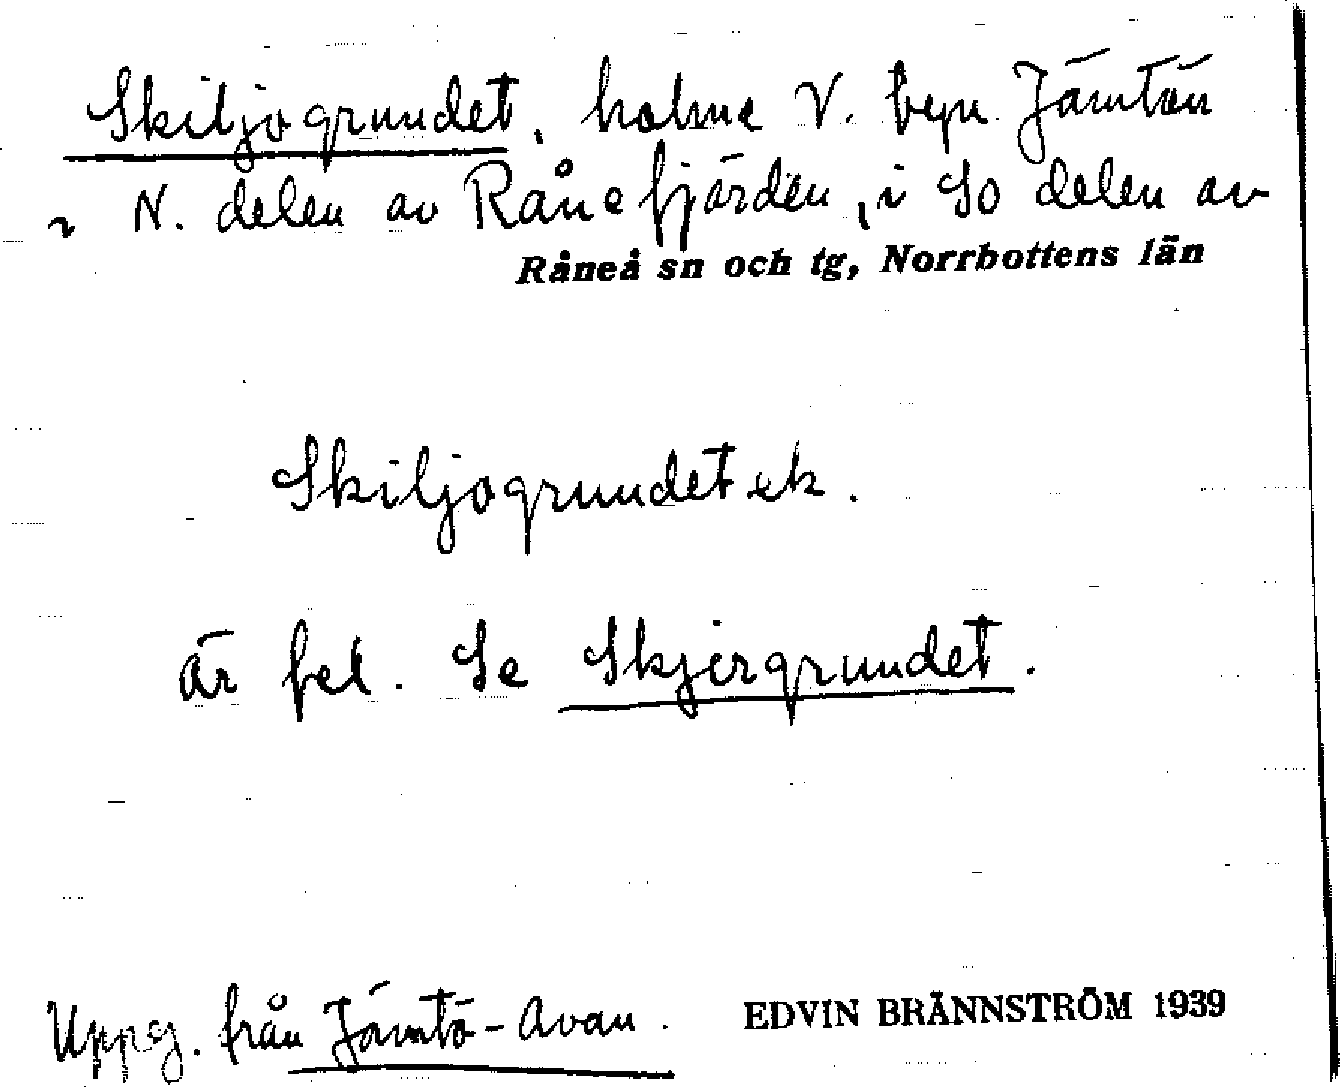 Skiljogrundet, holme V. byn Jämtön
i N. delen av Rånefjärden, i So delen av
Råneå sn och tg, Norrbottens län
Skiljogrundet ek.
är fel. Se Skjergrundet.
Uppg. från Jämtö-Avan.
EDVIN BRÄNNSTRÖM 1939